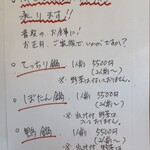 承ります!!
普段のお食事に!
お正月、ご家族でいかがですか?
○てっちり鍋 1人前 5500円
(2人前〜)
※ 野菜は付いてません。
○ぼたん鍋 1人前 5500円
(2人前〜)
※ 出汁付 野菜は
ついておりません。
○鴨鍋 1人前 5500円
(2人前〜)
※ 出汁付 野菜は